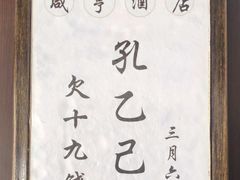 咸亨酒店
孔乙己
欠十九
三月六